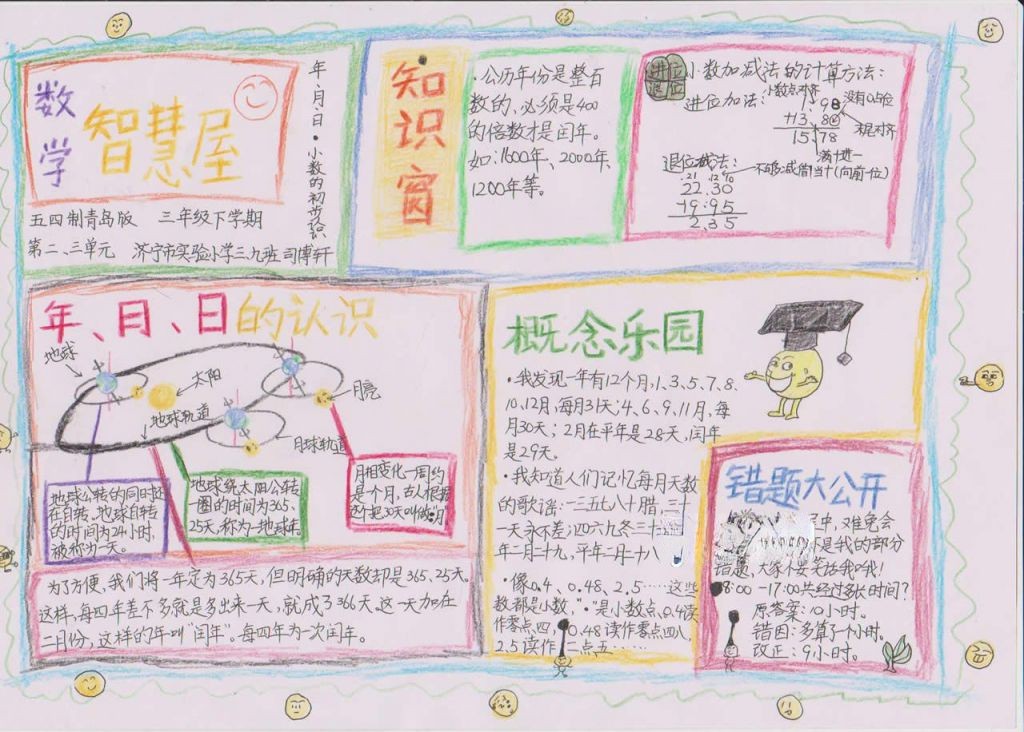 数学
智慧屋
年、月、日·小数的初步认识
五四制青岛版 三年级下学期
第二、三单元 济宁市实验小学三九班 司博轩
知识窗
·公历年份是整百
数的，必须是400
的倍数才是闰年。
如：1600年、2000年、
1200年等。
进位
退位
小数加减法的计算方法：
小数点对齐
进位加法：
没有0占位
1.98
+13.80
15.78
末尾对齐
满十进一
退位减法：
不够减借1当十(向前一位)
22.30
-19.95
2.35
年、月、日的认识
地球
太阳
地球轨道
月亮
月球轨道
地球公转的同时还
在自转，地球自转
的时间为24小时，
被称为一天。
地球绕太阳公转
一圈的时间为365.
25天，称为一地球年。
月相变化一周约
是个月，古人根据
这个把30天叫做"月"
为了方便，我们将一年定为365天，但明确的天数却是365.25天。
这样，每四年差不多就是多出来一天，就成了366天。这一天加在
二月份，这样的年叫"闰年"。每四年为一次闰年。
概念乐园
·我发现一年有12个月，1、3、5、7、8、
10、12月，每月31天；4、6、9、11月，每
月30天；2月在平年是28天，闰年
是29天。
·我知道人们记忆每月天数
的歌谣：一三五七八十腊，三十
一天永不差；四六九冬三十
年二月二十九，平年二月二十八
·像0.4、0.48、2.5……这些
数都是小数，"."是小数点，0.4读
作零点四，0.48读作零点四八，
2.5读作二点五……
错题大公开
中，难免会
是我的部分
错题，大家不要笑话我哦！
8:00-17:00共经过多长时间？
原答案：10小时。
错因：多算了1小时。
改正：9小时。